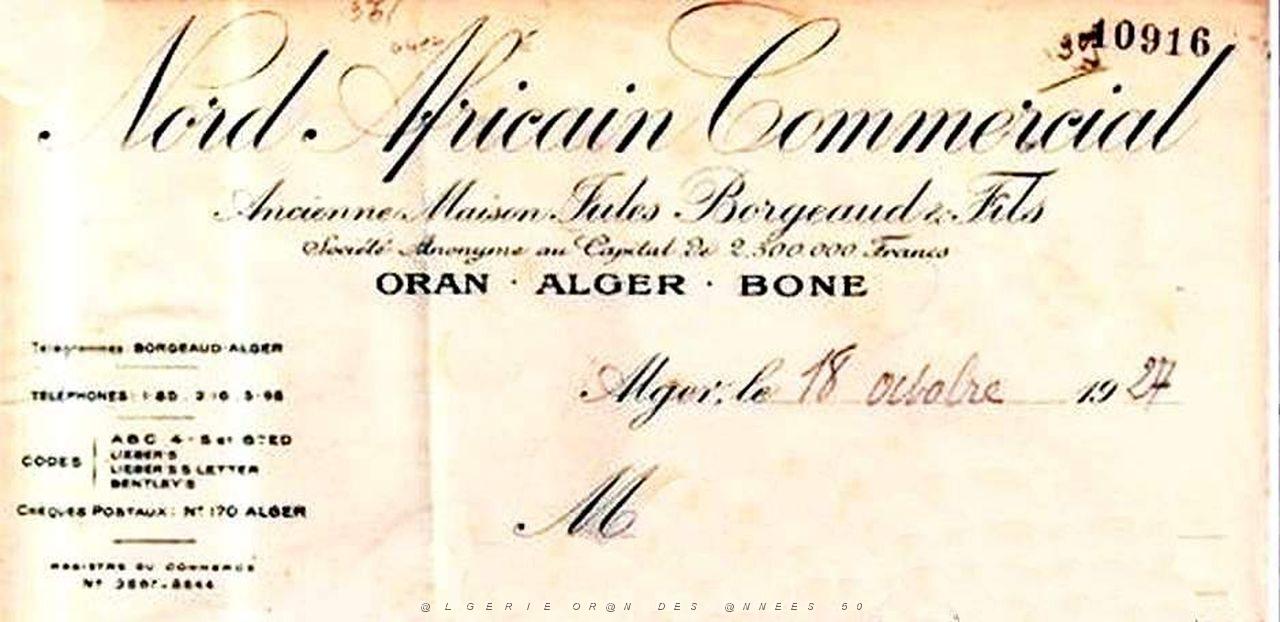 10916
Nord Africain Commercial
Ancienne Maison Jules Borgeaud & Fils
Société Anonyme au Capital de 2.500.000 Francs
ORAN · ALGER · BONE
Télégrammes: BORGEAUD-ALGER
Alger, le 18 octobre 1927
TÉLÉPHONES: 
CODES
A B C 4 - 5 et 6TED
LIEBER'S
LIEBER'S 5 LETTER
BENTLEY'S
M
CHÈQUES POSTAUX: N° 170 ALGER
REGISTRE DU COMMERCE
N°
@LGERIE OR@N DES @NNEES 50